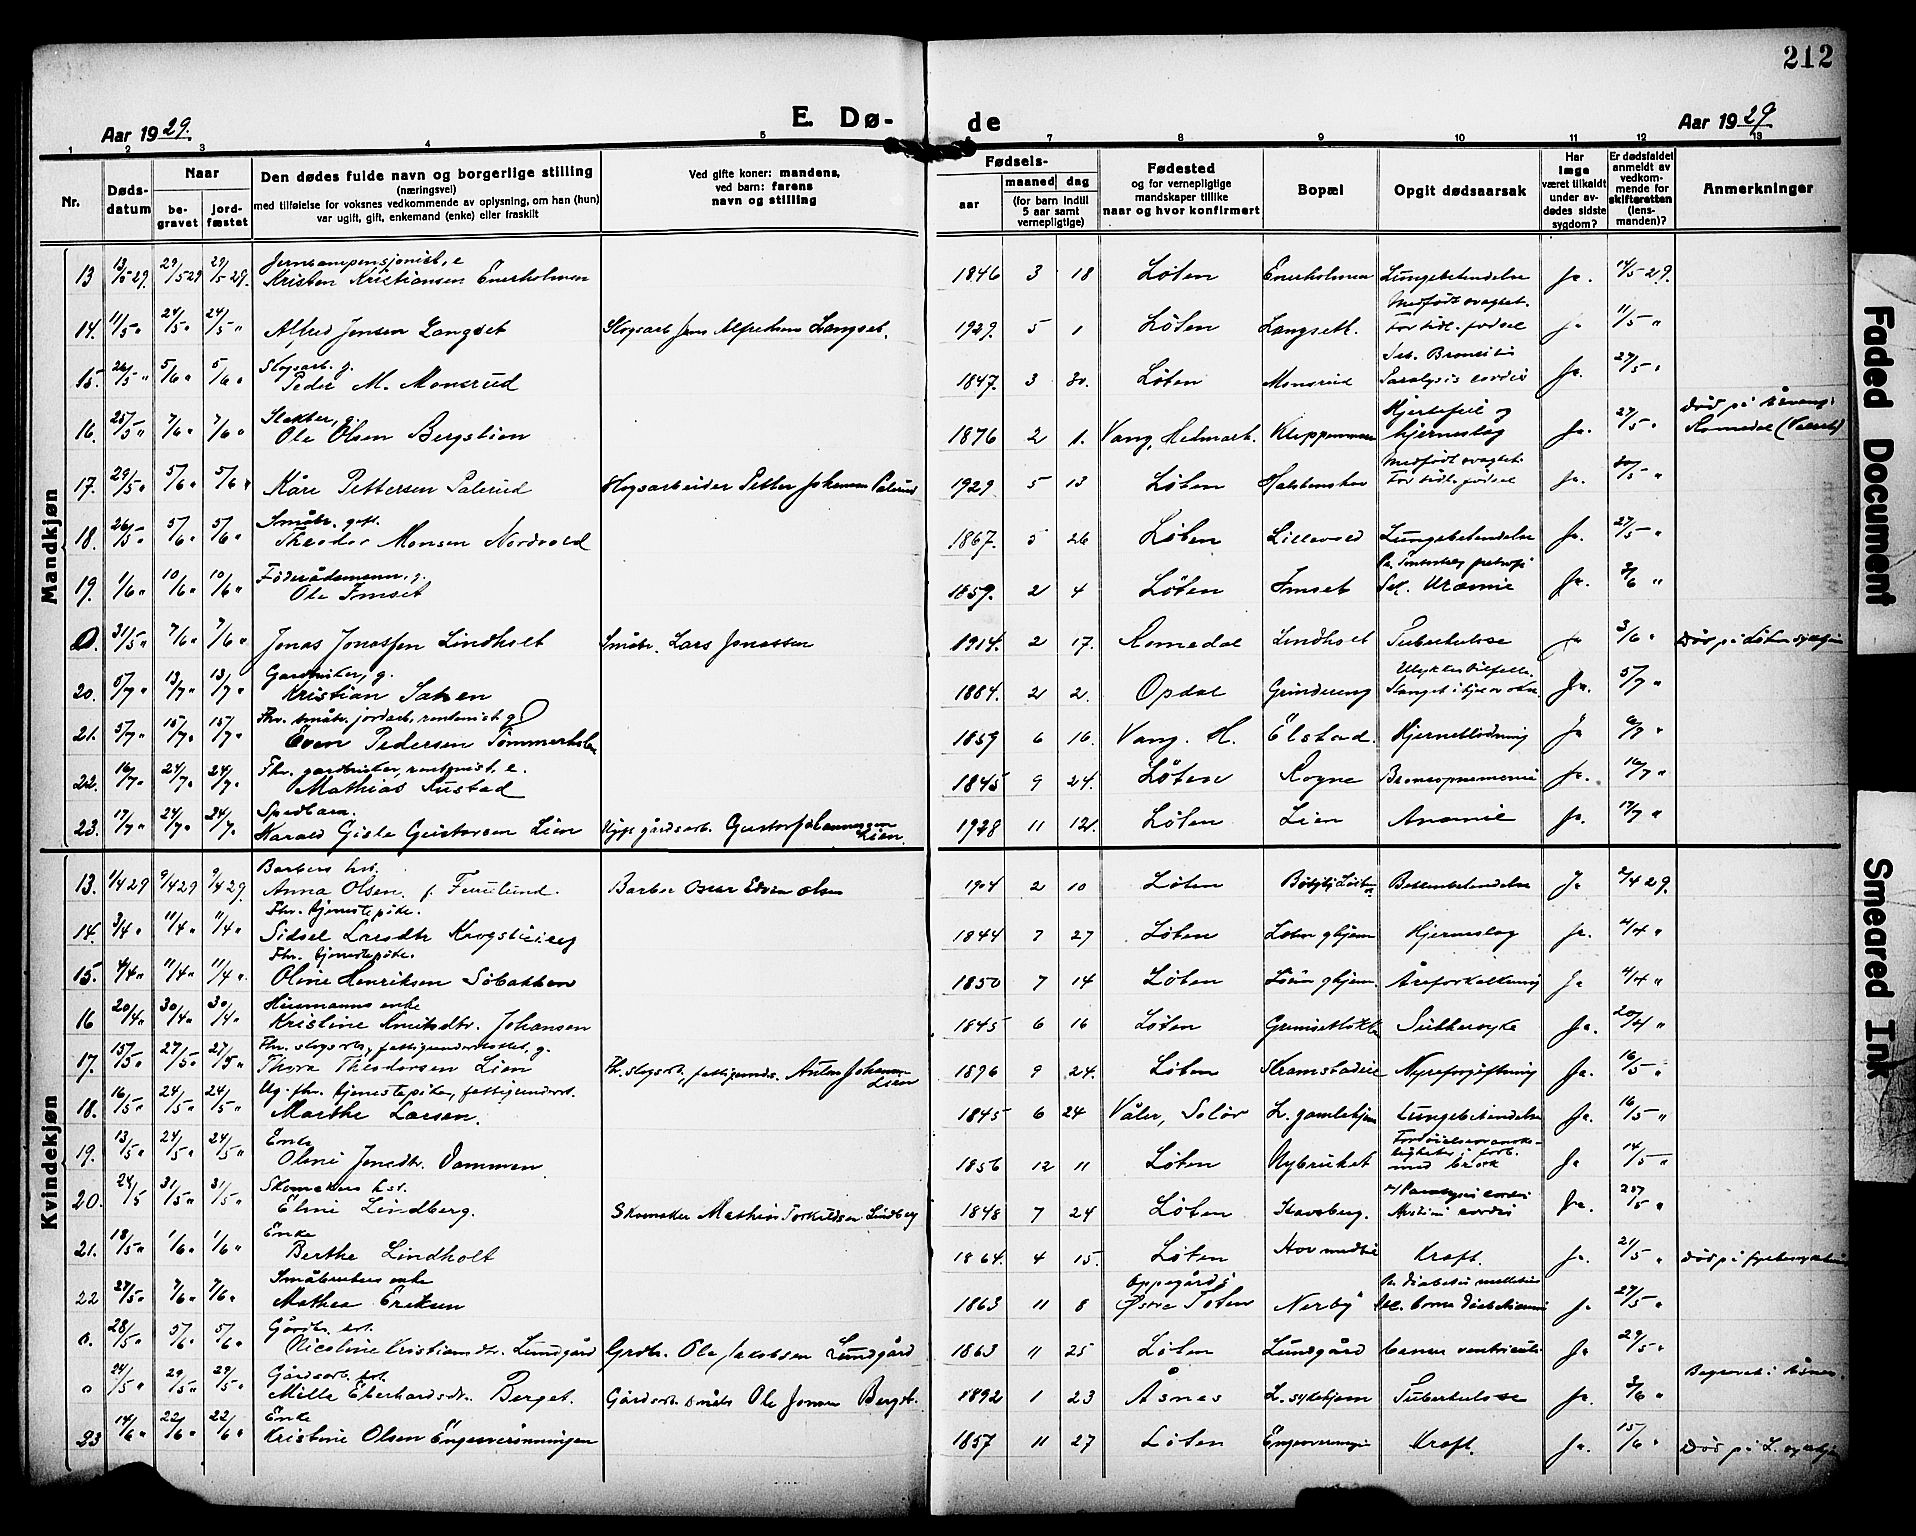 212
Aar 1929.
E. Dø-
de
Aar 1929
1 2 3 4 5 7 8 9 10 11 12 13
Nr.
Døds-
datum
Naar
be-
gravet
jord-
fæstet
Den dødes fulde navn og borgerlige stilling
(næringsvei)
med tilføielse for voksnes vedkommende av oplysning, om han (hun)
var ugift, gift, enkemand (enke) eller fraskilt
Ved gifte koner: mandens,
ved barn: farens
navn og stilling
Fødsels-
aar
maaned dag
(for barn indtil
5 aar samt
vernepligtige)
Fødested
og for vernepligtige
mandskaper tillike
naar og hvor konfirmert
Bopæl
Opgit dødsaarsak
Har
læge
været tilkaldt
under av-
dødes sidste
sygdom?
Er dødsfaldet
anmeldt av
vedkom-
mende for
skifteretten
(lens-
manden)?
Anmerkninger
Mandkjøn
13 13/5 29. 29/5 29 29/5 29. Kristen Kristiansen Enerholmen 1846 3 18 Løten Enerholmen Lungebetendelse Ja. 14/5 29.
14. 11/5 " 24/5 " 24/5 " Alfred Jensen Langset Skogsarb. Jens Alfredsen Langset. 1929. 5 1 Løten Langseth. Medfødt svaghet. For tidl. fødsel ja 11/5 "
15. 26/5 " 5/6 " 5/6 " Skogsarb. g.
Peder M. Monsrud 1847. 3 30. Løten Monsrud Paralysis cordis Ja. 27/5 "
16. 25/5 " 7/6 " 7/6 " Slakter, g.
Ole Olsen Bergstien 1876 2 1. Vang, Hedmark. Hjertefeil og
hjerneslag Ja. 27/5 " Død på
Romedal
17. 29/5 " 5/6 " 5/6 " Kåre Pettersen Palerud Skogsarbeider Petter Johansen Palerud 1929 5 13 Løten Medfødt svaghet. For tidl. fødsel Ja. 30/5 "
18. 26/5 " 5/6 " 5/6 " Småbr. gift.
Theodor Monsen Nordvold 1867. 5 26 Løten Lillevold Lungebetendelse Ja. 27/5 "
19. 1/6 " 10/6 " 10/6 " Føderådsmann, g.
Ole Imset 1859. 2 4 Løten Imset Uræmie Ja. 3/6 "
0. 31/5 " 7/6 " 7/6 " Jonas Jonassen Lindholt Småbr. Lars Jonassen 1914. 2 17. Romedal Lindholt Tuberkulose ja 3/6 " Død på Løten sykehjem
20. 5/7 " 13/7 " 13/7 " Gardbruker, g.
Kristian 1884. 2 2. Opdal Grindereng Ulykkestilfelle. Ja. 5/7 "
21. 5/7 " 15/7 " 15/7 " Fhv. småbr. jordarb, rentenist g
Even Pedersen Tømmerholen 1859 6 16. Vang. H. Elstad. Hjerneblødning Ja 6/7 "
22. 16/7 " 24/7 " 24/7 " Fhv. gardbruker, rentenist, e.
Mathias Rustad 1845 9 24. Løten Rogne Ja. 16/7 "
23. 17/7 " 24/7 " 24/7. Spedbarn.
Harald Gisle Gustavsen Lien gårdsarb. Gustav Johannessen
Lien. 1928 11 12. Løten Lien Anæmie Ja. 17/7 "
Kvindekjøn
13. 1/4 29 9/4 29 9/4 29. Barbers hst.
Anna Olsen. f. Furulund. Barber Oscar Edvin Olsen 1904 2 10 Løten Ja 2/4 29.
14. 3/4 " 11/4 " 11/4 " Fhv. tjenestepike.
Sidsel Larsdtr 1844 7 27 Løten Løten ghjem Hjerneslag Ja. 4/4 "
15. 4/4 " 11/4 " 11/4 " Fhv. tjenestepike.
Oline Henriksen Søbakken 1850 7 14 Løten Løten ghjem Åreforkalkning Ja 4/4 "
16 20/4 " 30/4 " 30/4 " Husmanns enke
Kristine Knutsdtr. Johansen 1845 6 16 Løten Sukkersyke Ja. 20/4 "
17. 15/5 " 27/5 " 27/5 " Fhv. skogsarb, fattigunderstøttet, g.
Thora Theodorsen Lien Anton Johannesen
Lien 1896 9 24. Løten Nyreforgiftning Ja. 16/5 "
18. 16/5 " 24/5 " 24/5 " Ug. fhv. tjenestepike, fattigunderst.
Marthe Larsen. 1845 6 24 Våler, Solør L. gamlehjem Lungebetendelse Ja. 16/5 "
19. 13/5 " 24/5 " 24/5 " Enke
Oline Jensdtr. Dammen 1856 12 11 Løten Nybruket med brok Ja 14/5 "
20. 24/5 31/5 " 31/5 " Skomakers hst.
Eline Lindberg. Skomaker Mathias Torkildsen Lindberg 1848 7 24 Løten Ja. 25/5 "
21. 18/5 " 1/6 " 1/6 " Enke
Berthe Lindholt 1864. 4 15. Løten Kreft. Ja. 21/5 " Død på
22 27/5 " 7/6 " 7/6 " Småbrukers enke
Mathea Eriksen 1863 11 8 Østre Toten Nerby Ja. 27/5 "
0. 28/5 " 5/6 " 5/6 " Gårdbr. hst.
Nicoline Kristiansdtr. Lundgård Grdbr. Ole Jakobsen Lundgård 1863 11 25 Løten Lundgård Cancer ventriculi Ja 29/5 "
0 24/5 " 29/5 " 29/5 " Gårdsarb. hst.
Milla Eberhardsdtr. Berget. Gårdsarb. Ole Jonsen Berget. 1892 1 23 Åsnes L. sykehjem Tuberkulose Ja 3/6 " Begravet i Åsnes.
23 14/6 " 22/6 " 22/6 " Enke
Kristine Olsen Engesvesvningen 1857 11 27 Løten Kreft. Ja. 15/6 " Død på L. sykehjem
Faded Document
Smeared Ink